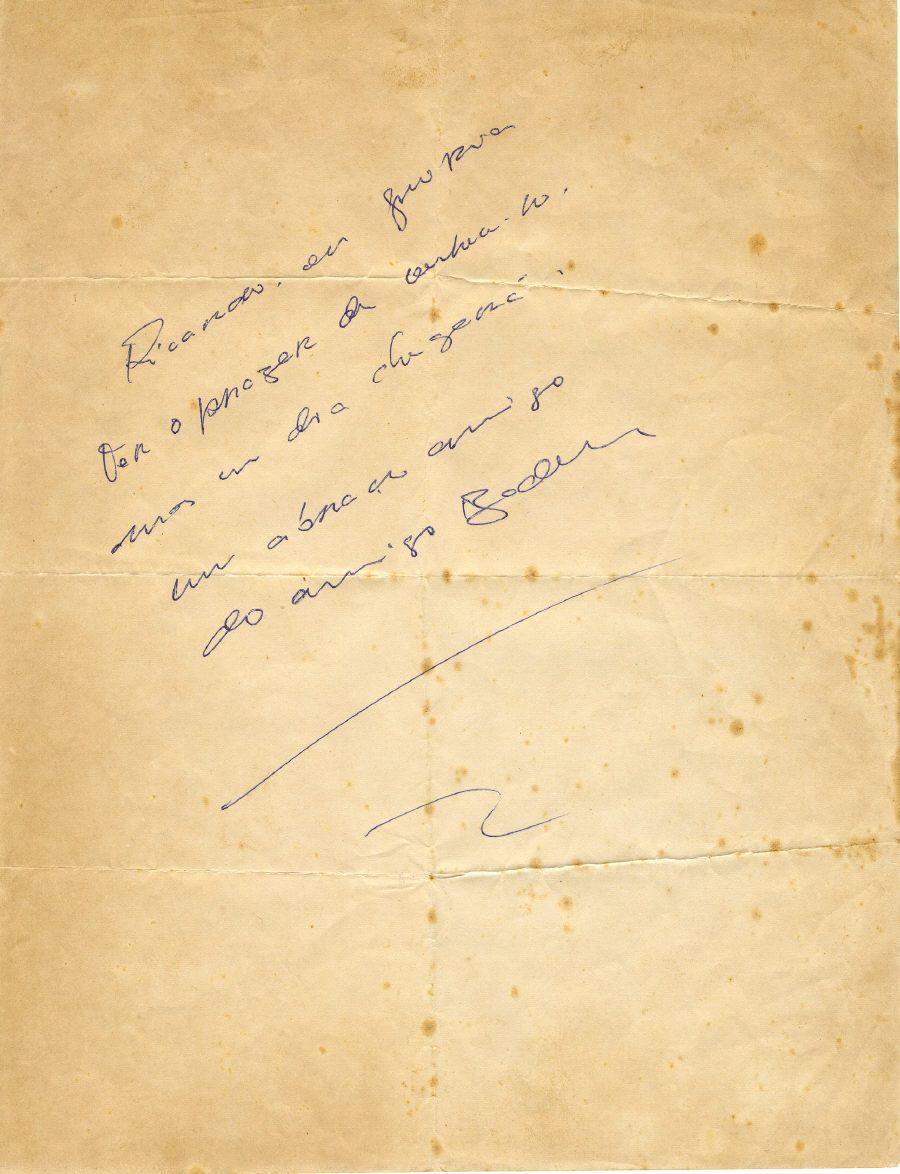 Ricardo, eu queria
ter o prazer de conhece-lo.
mas um dia chegará.
um abraço amigo
do amigo Baden